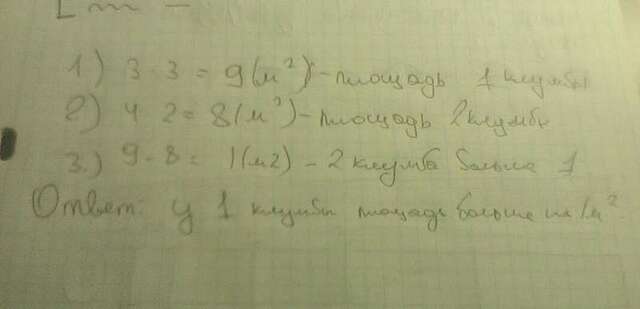 1) 3 · 3 = 9 (м²) - площадь 1 клумбы
2) 4 · 2 = 8 (м²) - площадь 2 клумбы
3.) 9 - 8 = 1 (м2) - 2 клумба больше 1
Ответ: у 1 клумбы площадь больше на 1м²